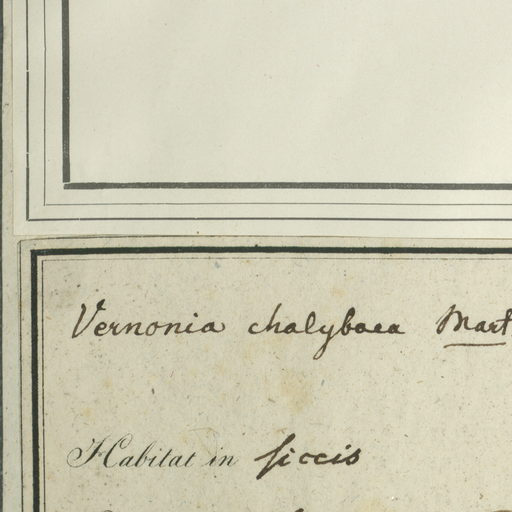 Vernonia chalybaea Mart
Habitat in siccis